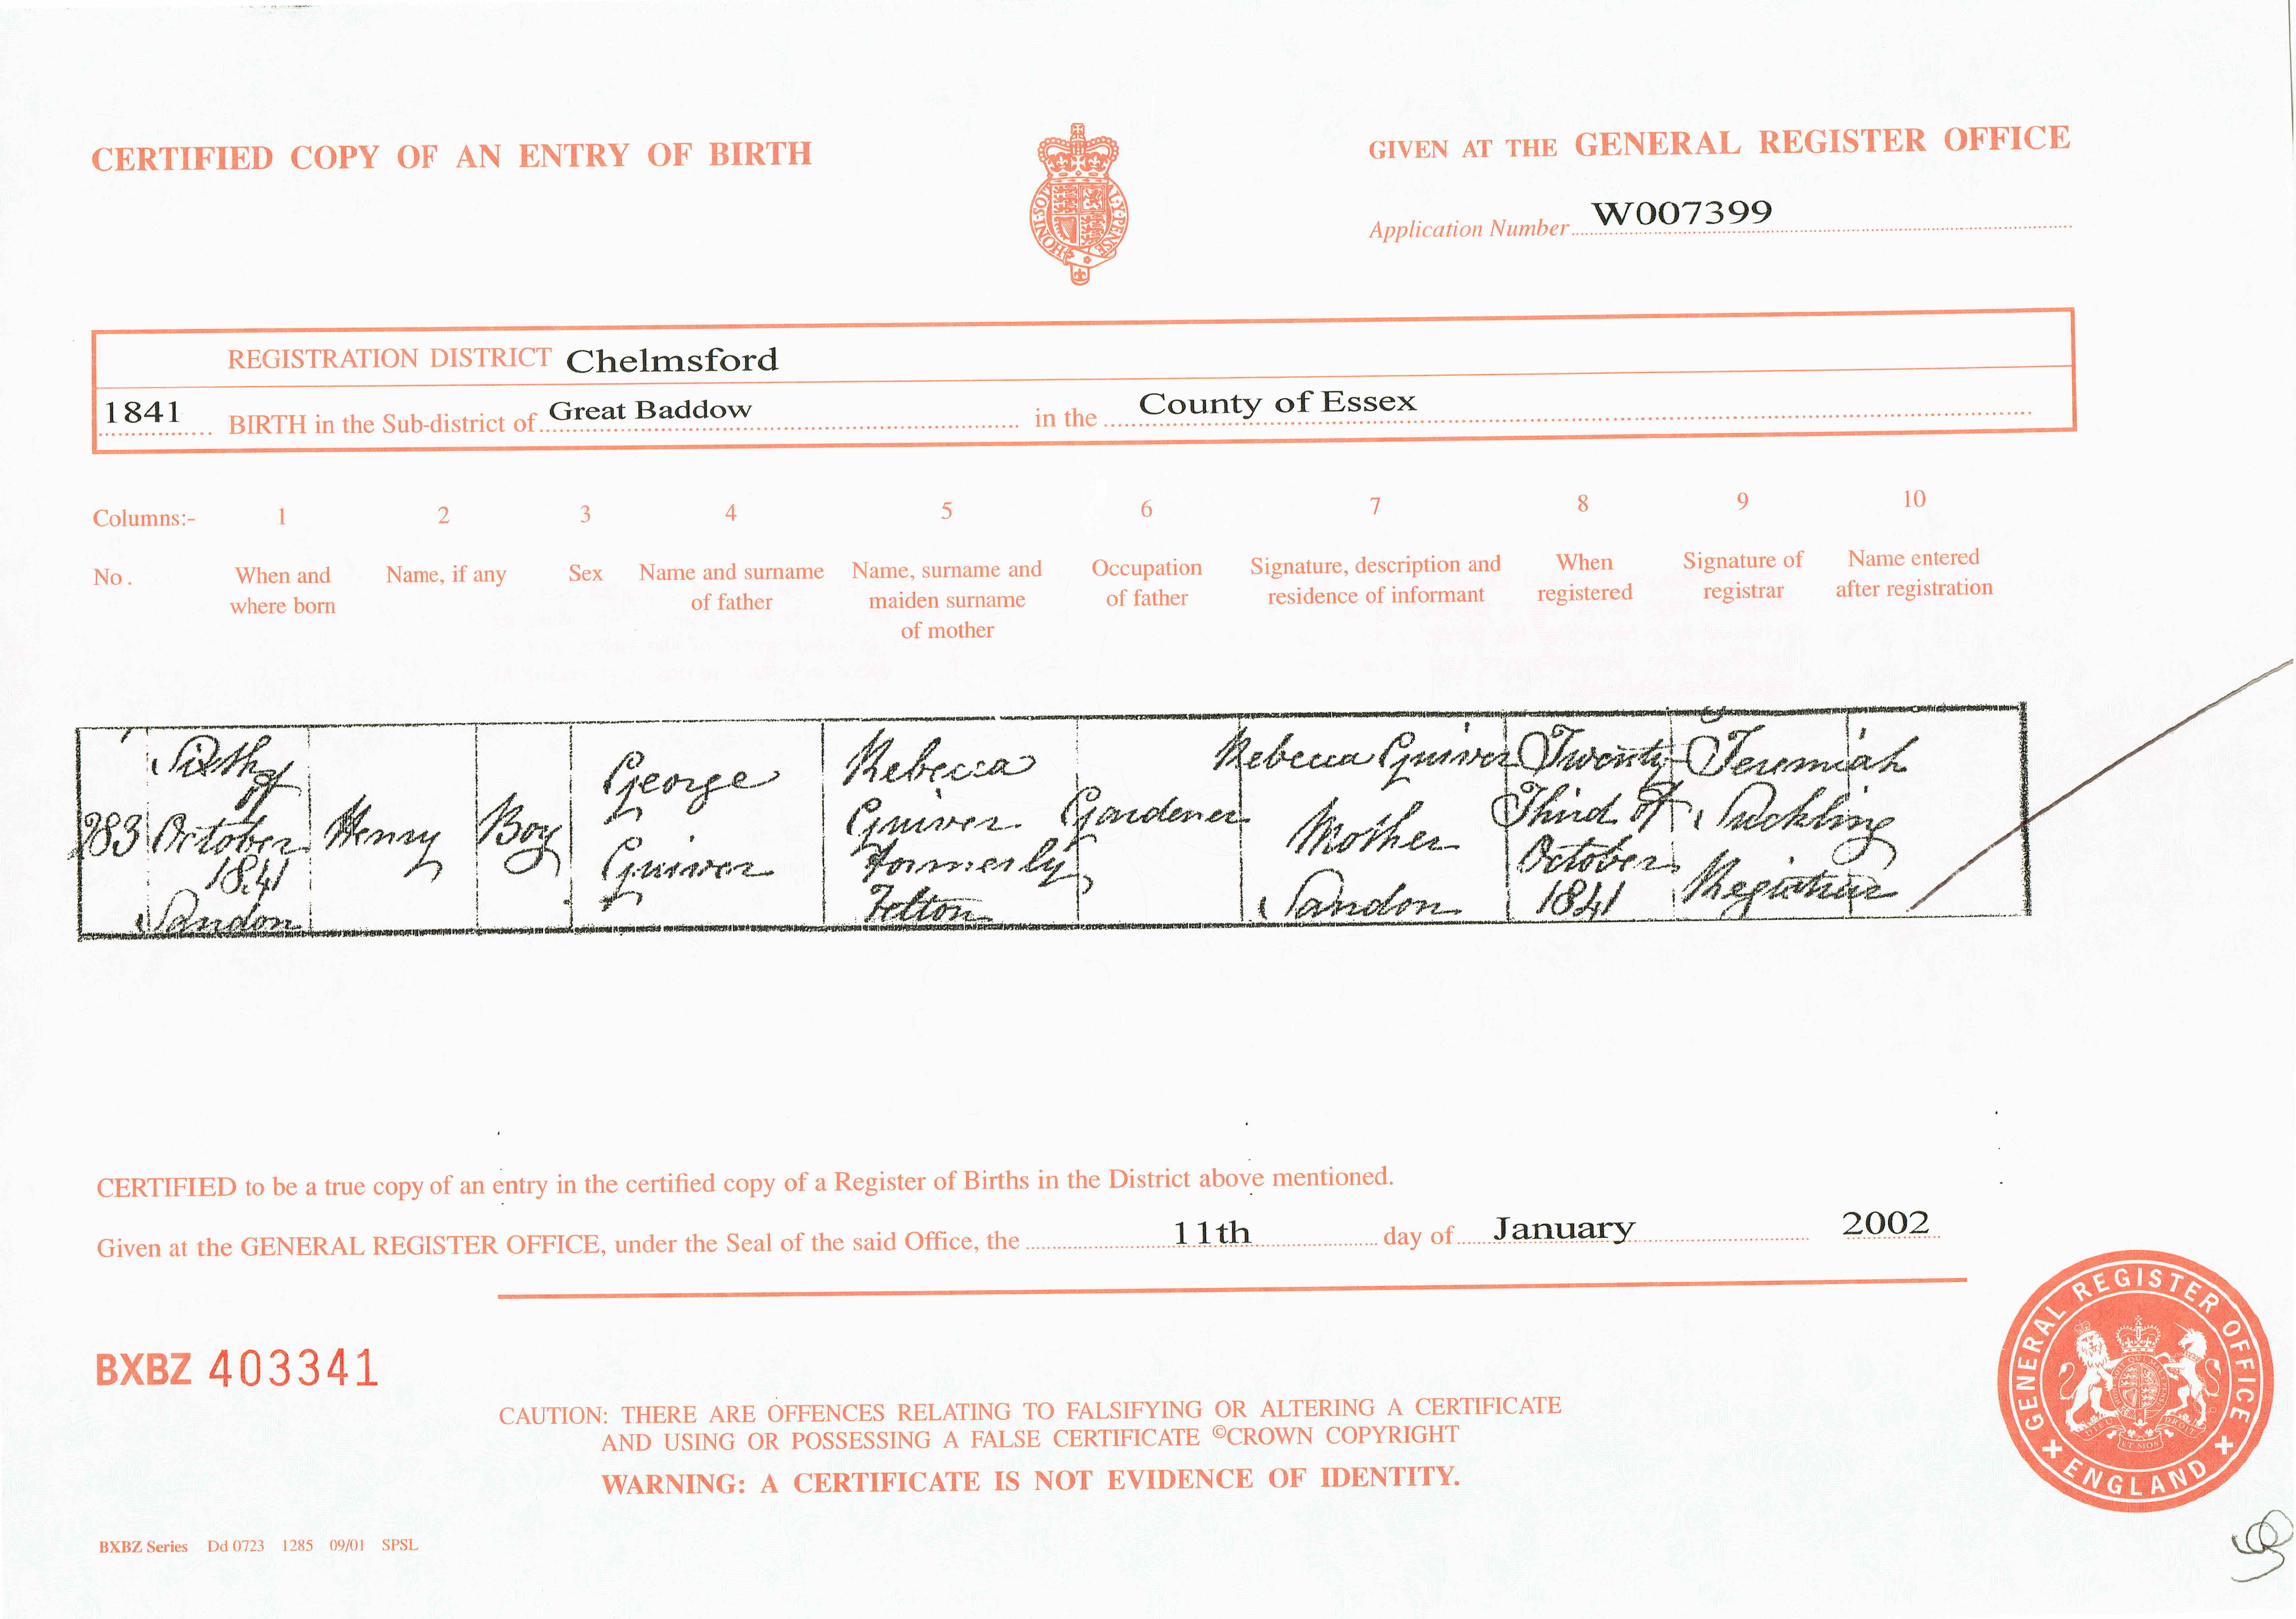 CERTIFIED COPY OF AN ENTRY OF BIRTH
GIVEN AT THE GENERAL REGISTER OFFICE
HONI·SOIT
AL·Y·PENSE
Application Number W007399
REGISTRATION DISTRICT Chelmsford
1841 BIRTH in the Sub-district of Great Baddow in the County of Essex
Columns:- 1 2 3 4 5 6 7 8 9 10
No. When and where born
Name, if any
Sex
Name and surname of father
Name, surname and maiden surname of mother
Occupation of father
Signature, description and residence of informant
When registered
Signature of registrar
Name entered after registration
283
Sixth
of
October
1841
Sandon
Henry
Boy
George
Quiver
Rebecca
Quiver
formerly
Felton
Gardener
Rebecca Quiver
Mother
Sandon
Twenty
Third of
October
1841
Jeremiah
Suckling
Registrar
CERTIFIED to be a true copy of an entry in the certified copy of a Register of Births in the District above mentioned.
Given at the GENERAL REGISTER OFFICE, under the Seal of the said Office, the 11th day of January 2002
BXBZ 403341
CAUTION: THERE ARE OFFENCES RELATING TO FALSIFYING OR ALTERING A CERTIFICATE
AND USING OR POSSESSING A FALSE CERTIFICATE ©CROWN COPYRIGHT
WARNING: A CERTIFICATE IS NOT EVIDENCE OF IDENTITY.
GENERAL REGISTER OFFICE
ENGLAND
BXBZ Series Dd 0723 1285 09/01 SPSL